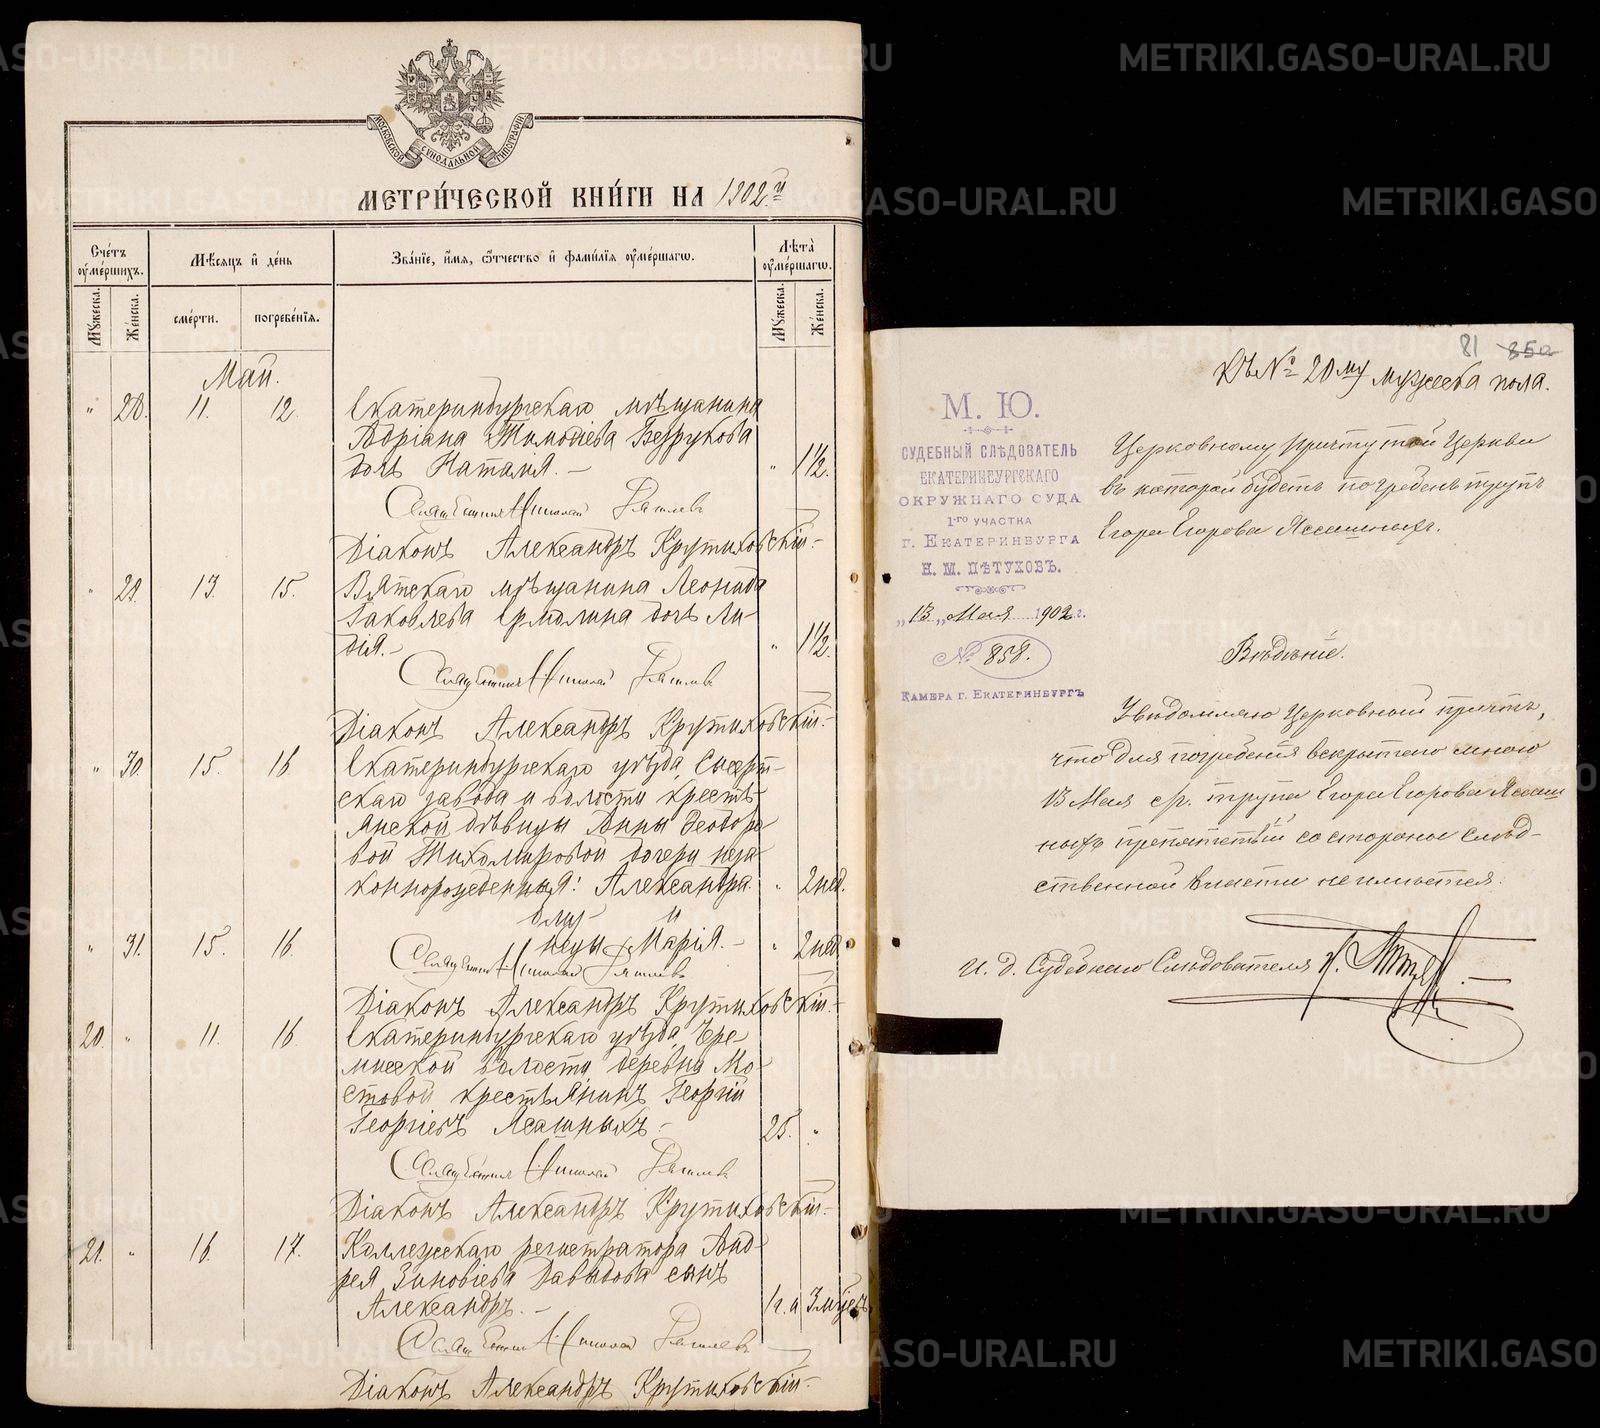 МОСКОВСКОЙ СѴНОДАЛЬНОЙ ТИПОГРАФІИ
МЕТРИ́ЧЕСКОЙ КНИ́ГИ НА 1902 й
Сче́тъ оуме́ршихъ.
Мѣ́сяцъ и де́нь
Зва́нїе, и́мя, ѻ́тчество и фами́лїя оуме́ршагѡ.
Лѣта̀ оуме́ршагѡ.
Мꙋ́жеска.
Же́нска.
сме́рти.
погребе́нїя.
Мꙋ́жеска.
Же́нска.
Май.
" 28. 11. 12. Екатеринбургскаго мѣщанина
Адріана Тимоѳеева Безрукова
дочь Наталія. — " 1½.
Священникъ Николай
Діаконъ Александръ Крутиховскій.
" 29. 13. 15. Вятскаго мѣщанина Леонида
Іаковлева Ермолина дочь Ли-
дія. — " 1½.
Священникъ Николай
Діаконъ Александръ Крутиховскій.
" 30. 15. 16. Екатеринбургскаго уѣзда, Сысерт-
скаго завода и волости кресть-
янской дѣвицы Анны Ѳеодоро-
вой Тихомировой дочери неза-
коннорожденныя: Александра " 2 нед.
близ- и
" 31. 15. 16. нецы Марія. — " 2 нед.
Священникъ Николай
Діаконъ Александръ Крутиховскій.
20. " 11. 16. Екатеринбургскаго уѣзда,
волости деревни Мо-
стовой крестьянинъ Георгій
Георгіевъ Ясашныхъ. — 25. "
Священникъ Николай
Діаконъ Александръ Крутиховскій.
21. " 16. 17. Коллежскаго регистратора Анд-
рея Зиновіева Давыдова сынъ
Александръ. — 1 г. и 3 мѣс.
Священникъ Николай
Діаконъ Александръ Крутиховскій.
81 85а
Къ № 20му мужеска пола.
М. Ю.
СУДЕБНЫЙ СЛѢДОВАТЕЛЬ
ЕКАТЕРИНБУРГСКАГО
ОКРУЖНАГО СУДА
1-го УЧАСТКА
г. ЕКАТЕРИНБУРГА
Н. М. ПѢТУХОВЪ.
"13" Мая 1902 г.
№ 858.
КАМЕРА Г. ЕКАТЕРИНБУРГЪ
Церковному причту той Церкви
въ которой будетъ погребенъ трупъ
Егора Егорова Ясашныхъ.
Вѣдѣніе.
Увѣдомляю Церковный причтъ,
что для погребенія вскрытаго мною
13 Мая ср. трупа Егора Егорова Ясаш
ныхъ препятствій со стороны слѣд-
ственной власти не имѣется.
И. д. Судебнаго Слѣдователя
METRIKI.GASO-URAL.RU